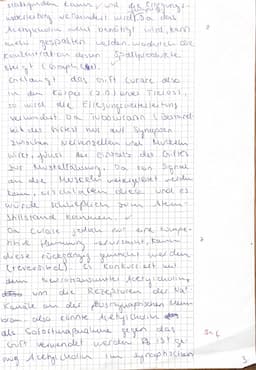 kann, und die Erregungs-
verhindert wird. Da das
Acetylcholin nicht benötigt wird, kann
auch gespalten werden, wodurch die
Konzentration deren Spaltprodukte
steigt
Gelangt das Gift Curare also
in den Körper eines Tieres,
so wird die Erregungsweiterleitung
verhindert. Da Tubocurarin
nur auf Synapsen
zwischen Nervenzellen und Muskeln
wirkt, führt der Einsatz des Giftes
zur Muskellähmung. Da kein Signal
an die Muskeln weitergeleitet werden
kann, diese und es
würde schließlich zum Atem-
stillstand kommen.
Da Curare jedoch nur eine kompe-
titive Hemmung verursacht, kann
diese rückgängig gemacht werden
(reversibel). Es konkurriert mit
dem Neurotransmitter Acetylcholin
um die Rezeptoren der Na+
Kanäle an der postsynaptischen Mem-
bran, also könnte Acetylcholin
als Sofortmaßnahme gegen das
Gift verwendet werden. Ist ge-
nug Acetylcholin im synaptischen
3